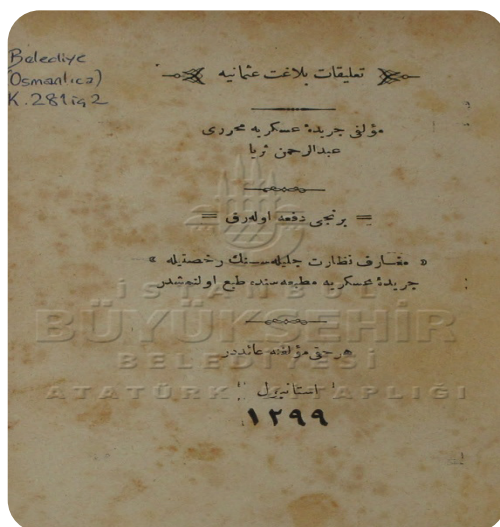 Belediye
(Osmanlıca)
K.281
تعلیقات بلاغت عثمانیه
مؤلفی جریدهٔ عسکریه محرری
عبدالرحمن ثریا
= برنجی دفعه اوله‌رق =
« معارف نظارت جلیله‌سنك رخصتیله »
جریدهٔ عسکریه مطبعه‌سنده طبع اولنمشدر
هر حقی مؤلفنه عائددر
استانبول
۱۲۹۹
İSTANBUL
BÜYÜKŞEHİR
BELEDİYESİ
ATATÜRK KİTAPLIĞI